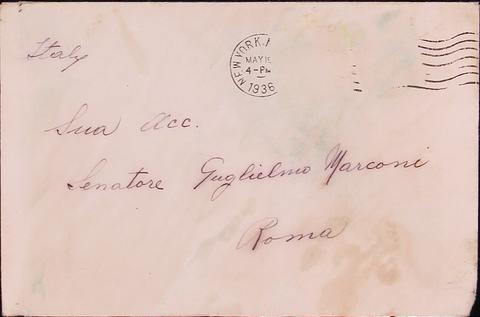 Italy
NEW YORK, N
MAY 1
4-PM
1936
Sua Acc.
Senatore Guglielmo Marconi
Roma